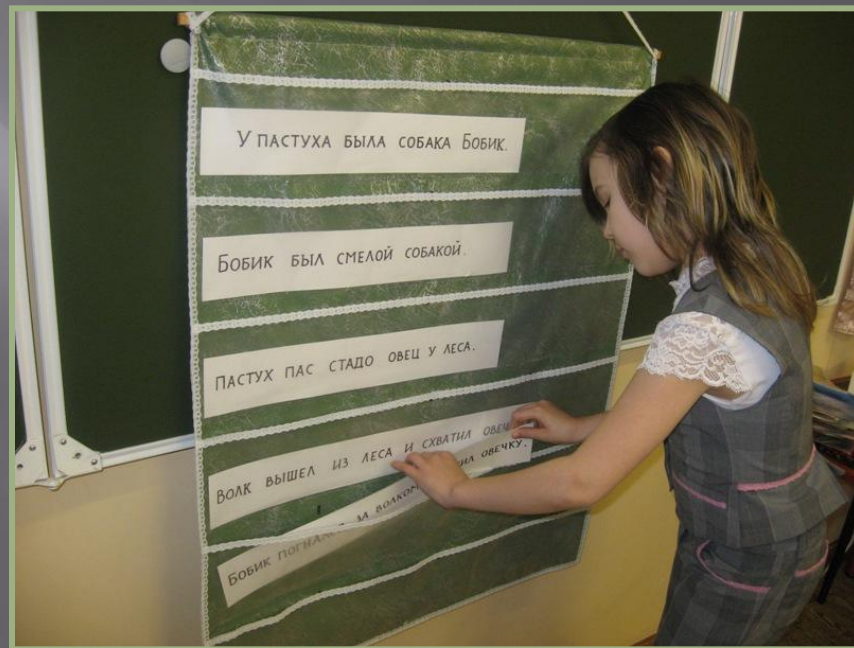 У ПАСТУХА БЫЛА СОБАКА БОБИК.
БОБИК БЫЛ СМЕЛОЙ СОБАКОЙ.
ПАСТУХ ПАС СТАДО ОВЕЦ У ЛЕСА.
ВОЛК ВЫШЕЛ ИЗ ЛЕСА И СХВАТИЛ
БОБИК ЗА ВОЛКОМ ОВЕЧКУ.